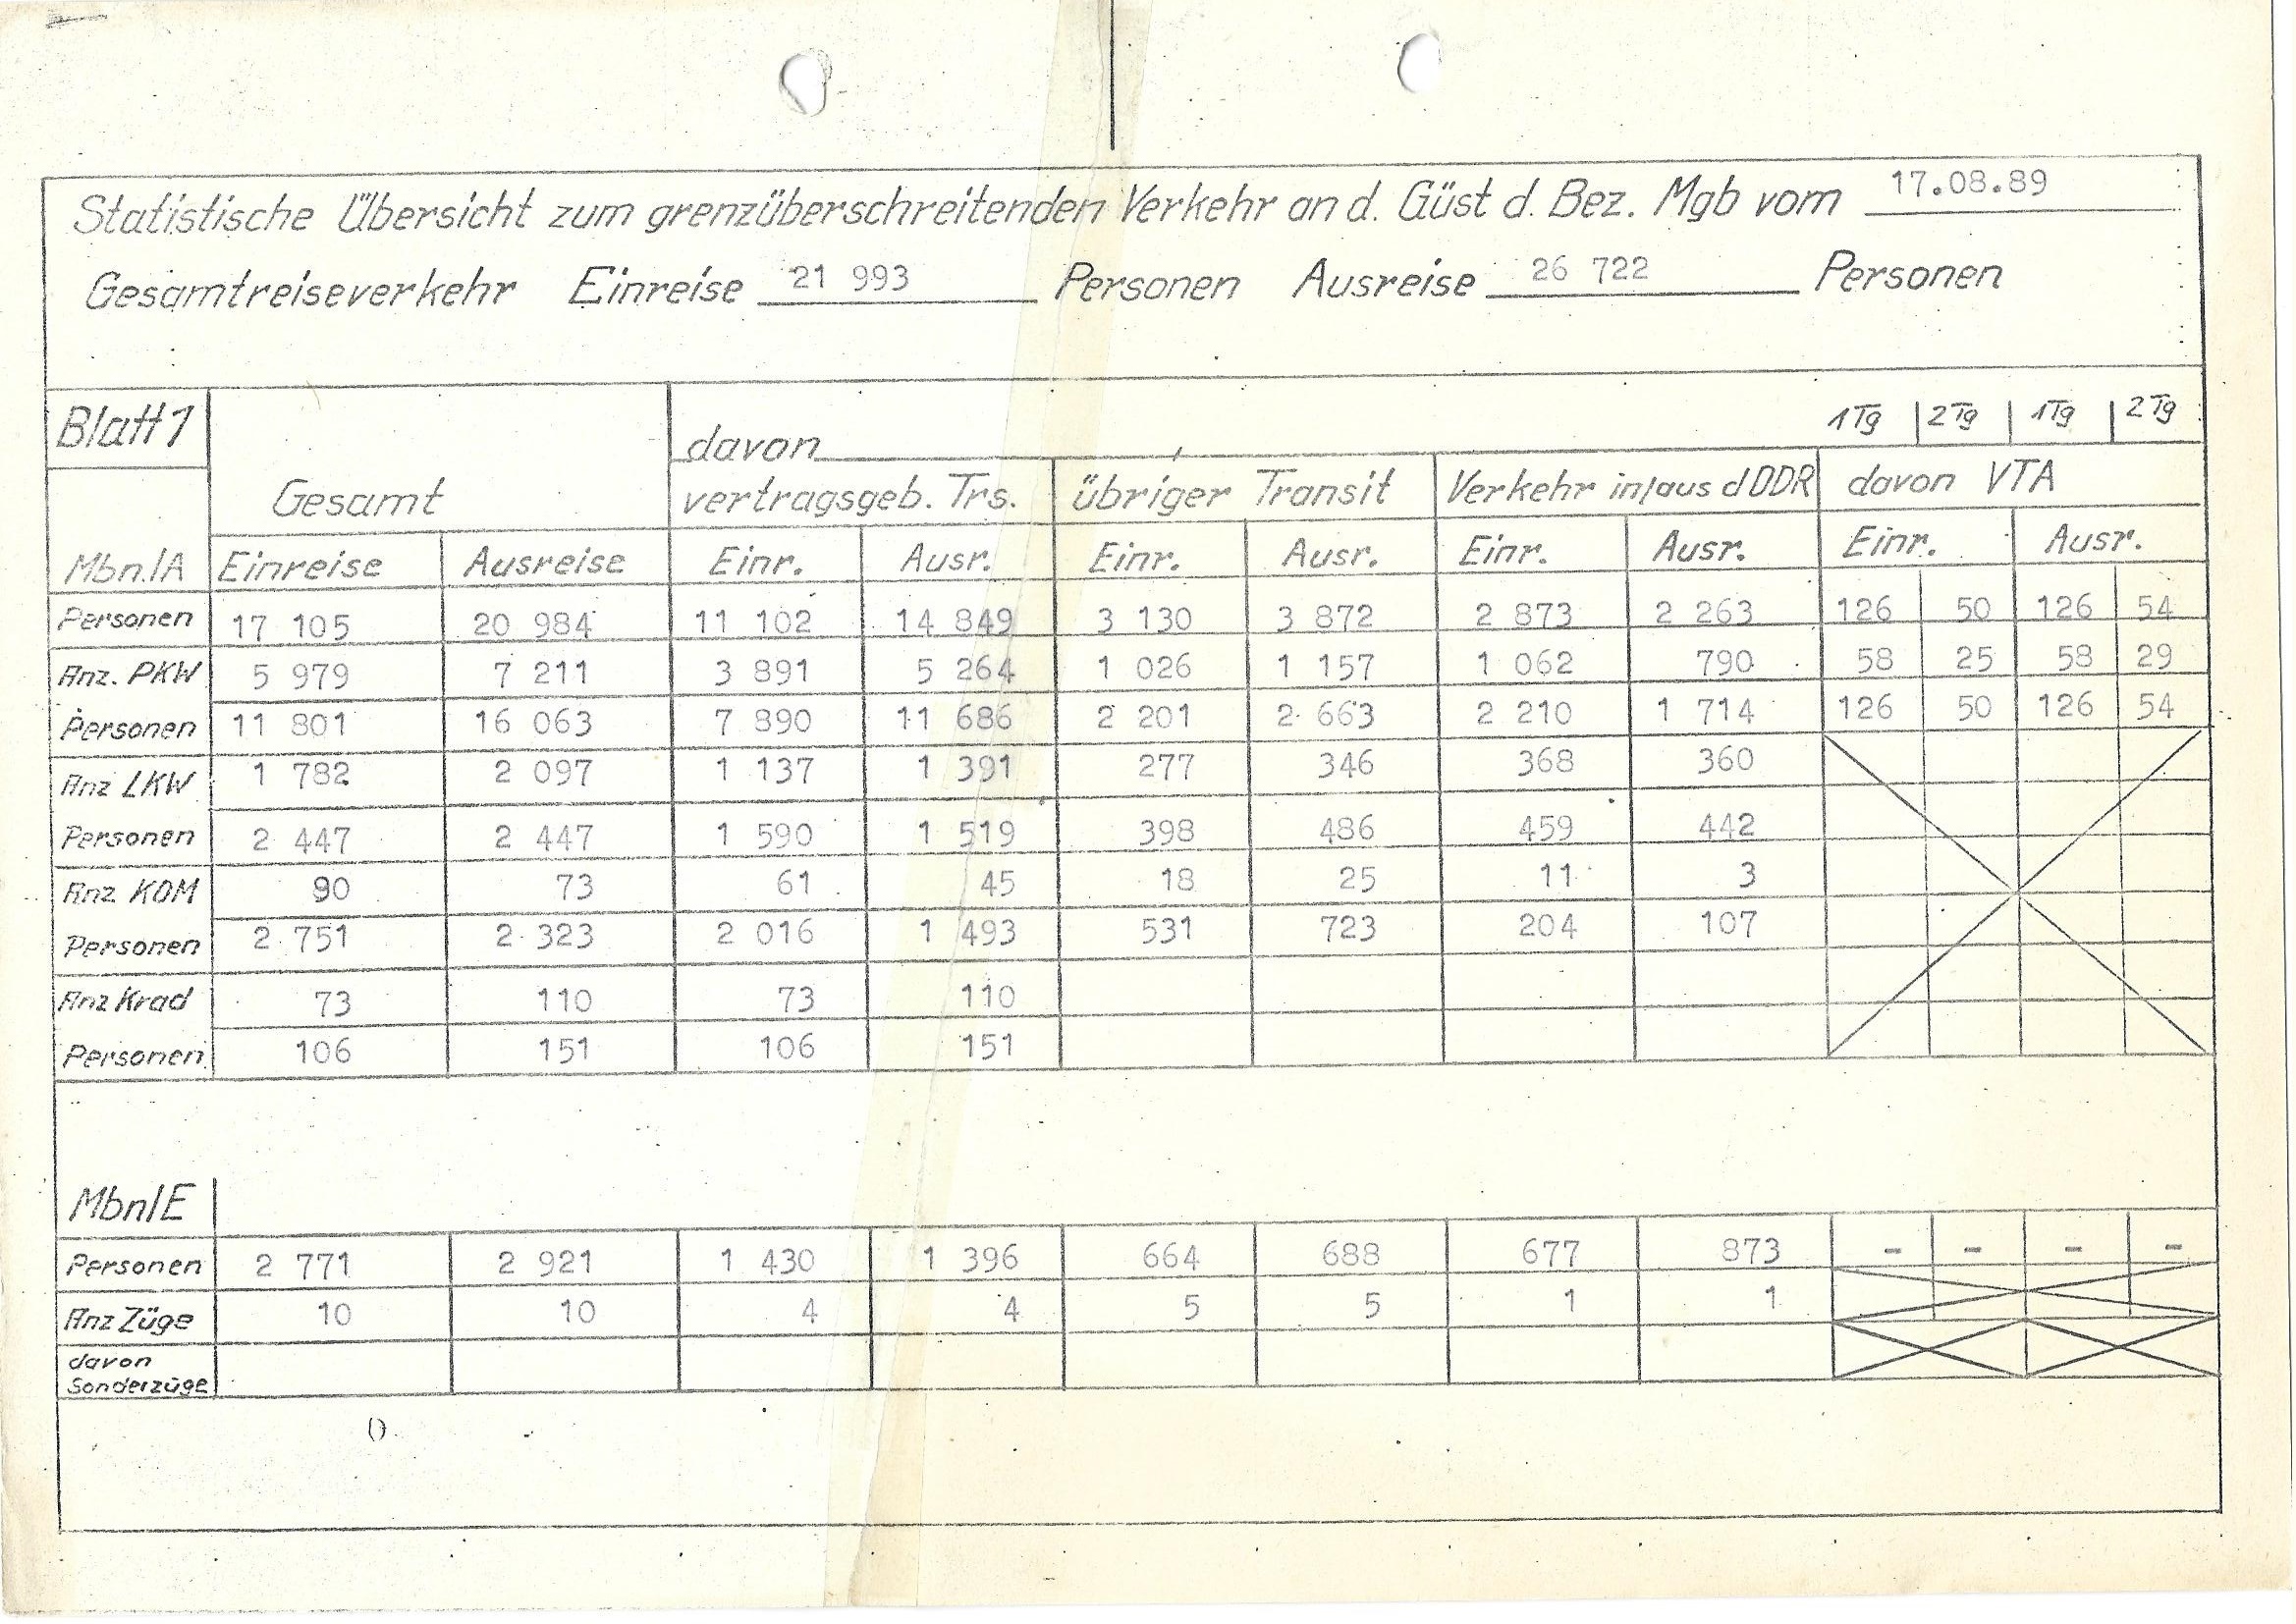 Statistische Übersicht zum grenzüberschreitenden Verkehr an d. Güst d. Bez. Mgb vom 17.08.89
Gesamtreiseverkehr Einreise 21 993 Personen Ausreise 26 722 Personen
Blatt 1 davon 1 Tg 2 Tg 1 Tg 2 Tg
Gesamt vertragsgeb. Trs. übriger Transit Verkehr in/aus d DDR davon VTA
Mbn./A Einreise Ausreise Einr. Ausr. Einr. Ausr. Einr. Ausr. Einr. Ausr.
Personen 17 105 20 984 11 102 14 849 3 130 3 872 2 873 2 263 126 50 126 54
Anz. PKW 5 979 7 211 3 891 5 264 1 026 1 157 1 062 790 58 25 58 29
Personen 11 801 16 063 7 890 11 686 2 201 2 663 2 210 1 714 126 50 126 54
Anz LKW 1 782 2 097 1 137 1 391 277 346 368 360
Personen 2 447 2 447 1 590 1 519 398 486 459 442
Anz KOM 90 73 61 45 18 25 11 3
Personen 2 751 2 323 2 016 1 493 531 723 204 107
Anz Krad 73 110 73 110
Personen 106 151 106 151
Mbn/E
Personen 2 771 2 921 1 430 1 396 664 688 677 873 - - - -
Anz Züge 10 10 4 4 5 5 1 1
davon
Sonderzüge